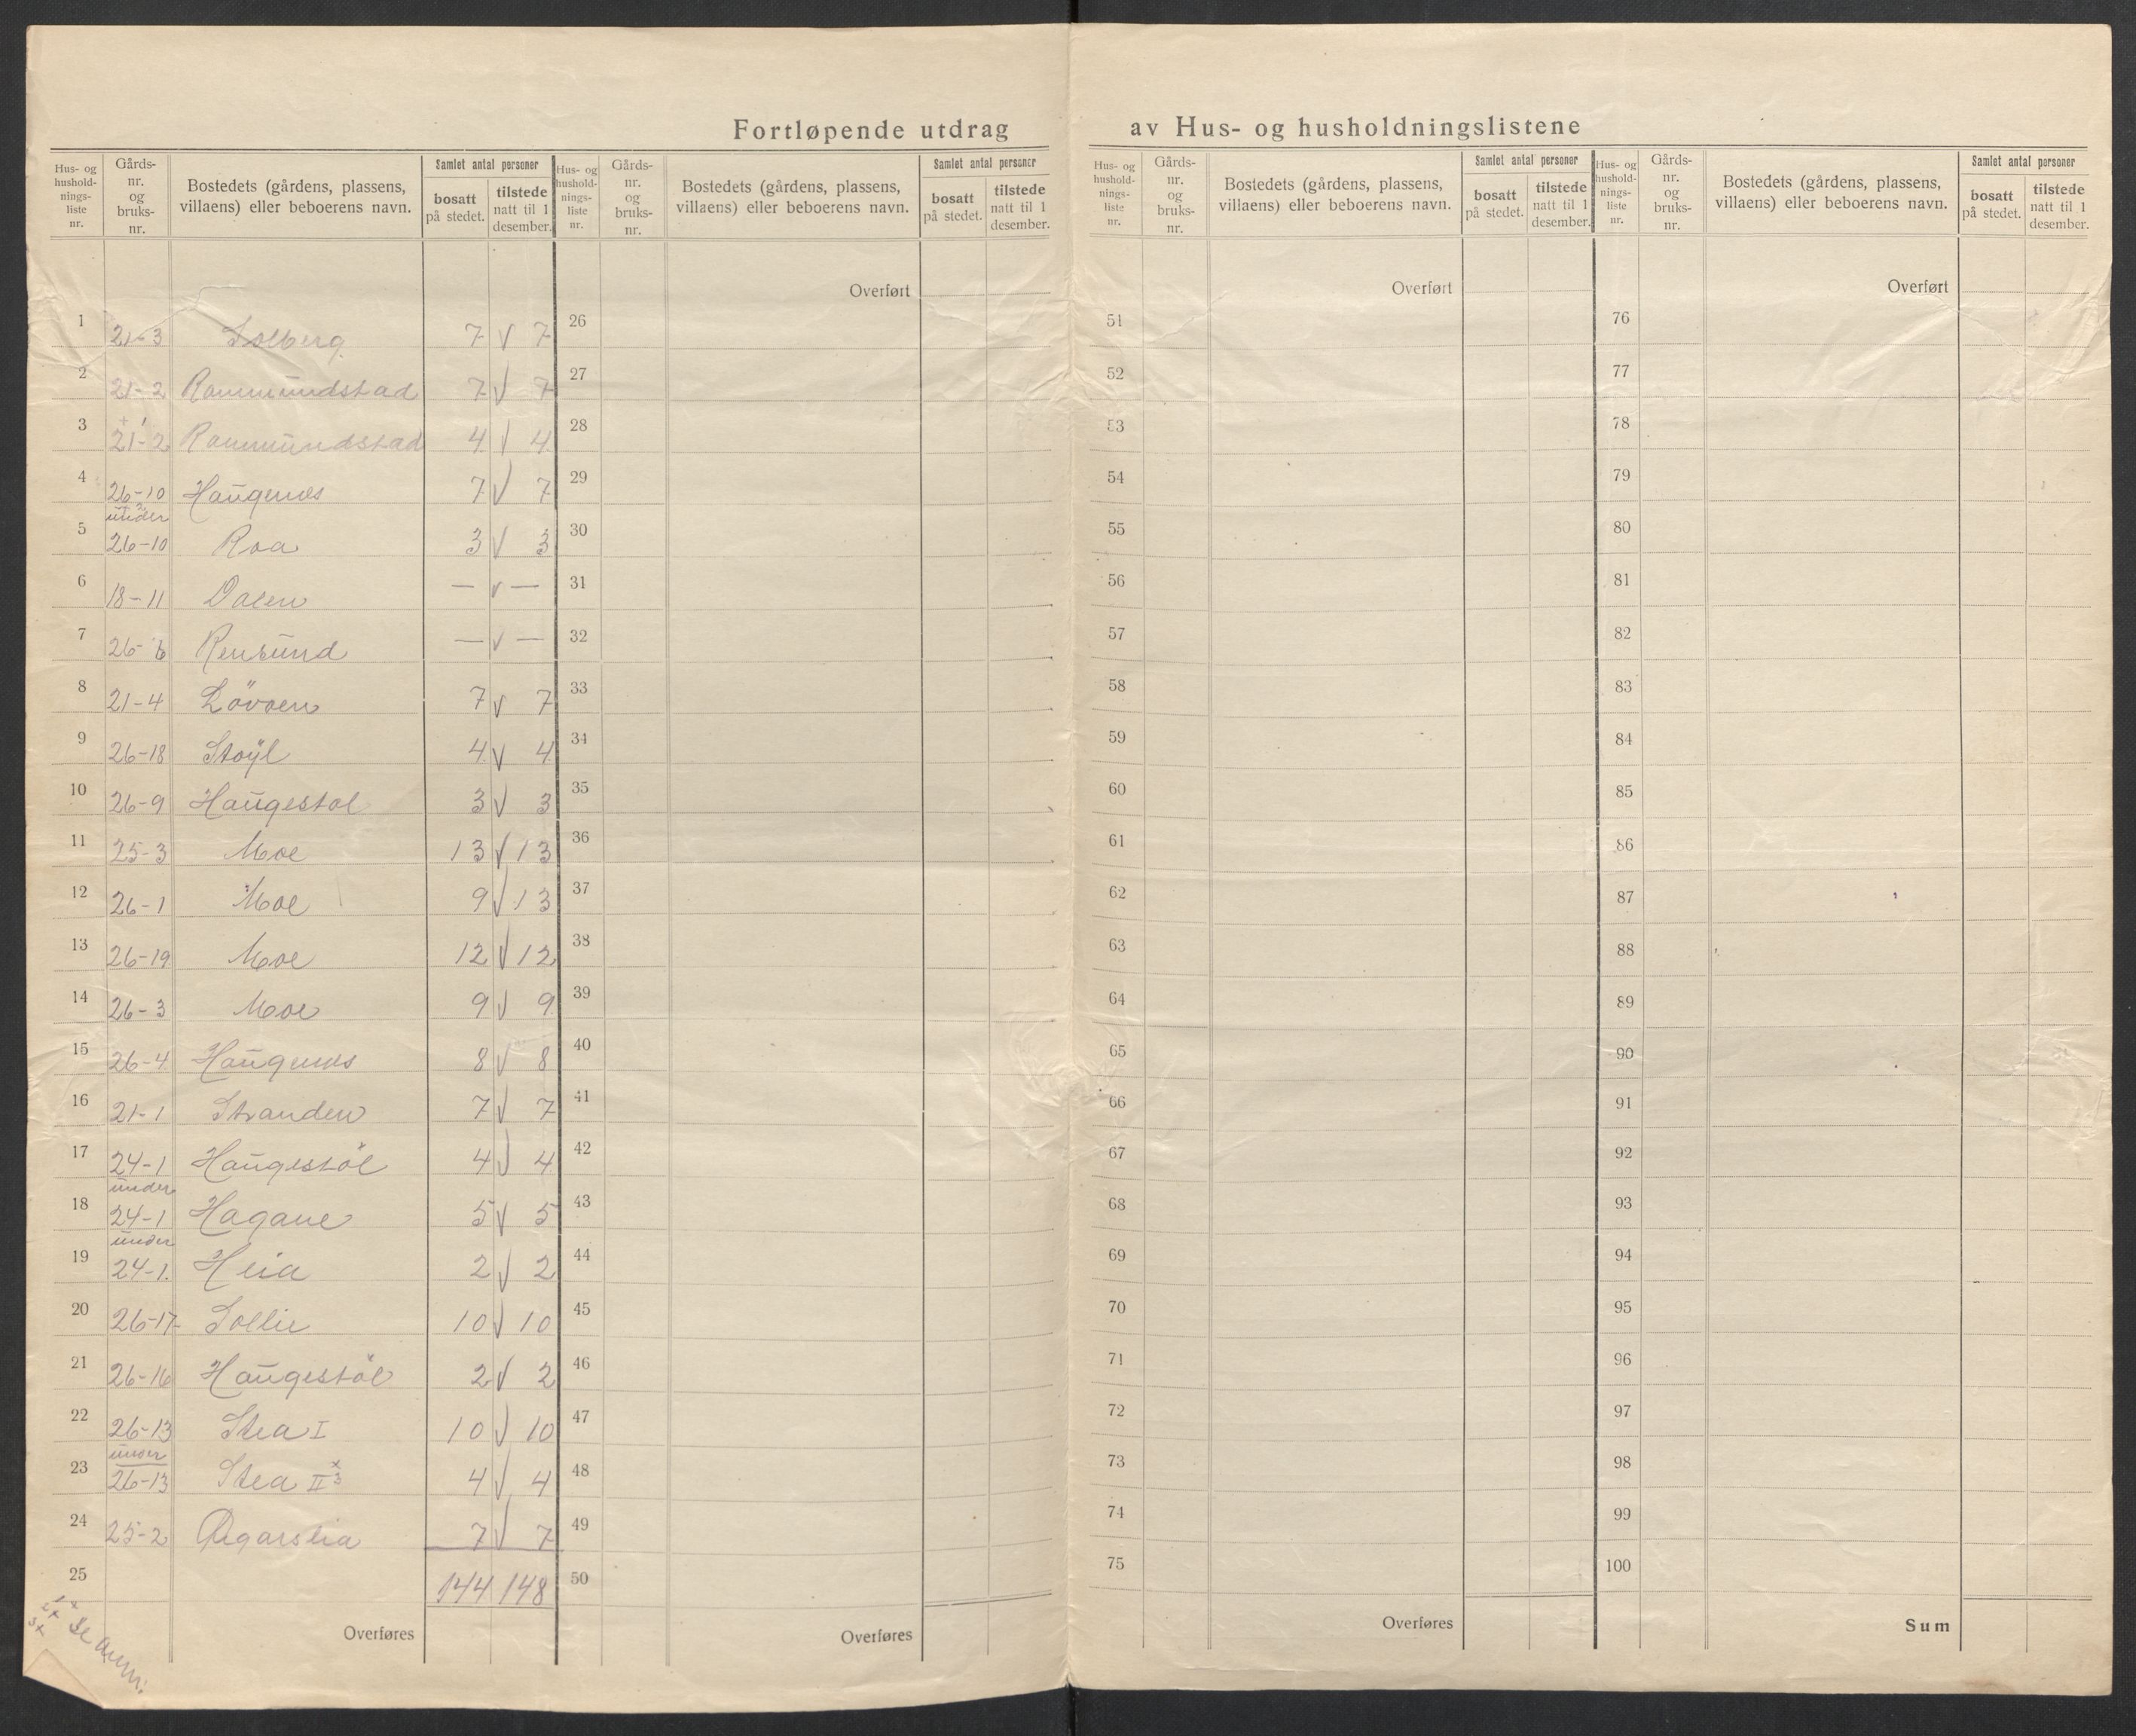 Fortløpende utdrag av Hus- og husholdningslistene
Hus- og husholdnings-liste nr. | Gårds-nr. og bruks-nr. | Bostedets (gårdens, plassens, villaens) eller beboerens navn. | Samlet antal personer | bosatt på stedet. | tilstede natt til 1 desember.
Hus- og husholdnings-liste nr. | Gårds-nr. og bruks-nr. | Bostedets (gårdens, plassens, villaens) eller beboerens navn. | Samlet antal personer | bosatt på stedet. | tilstede natt til 1 desember.
Hus- og husholdnings-liste nr. | Gårds-nr. og bruks-nr. | Bostedets (gårdens, plassens, villaens) eller beboerens navn. | Samlet antal personer | bosatt på stedet. | tilstede natt til 1 desember.
Hus- og husholdnings-liste nr. | Gårds-nr. og bruks-nr. | Bostedets (gårdens, plassens, villaens) eller beboerens navn. | Samlet antal personer | bosatt på stedet. | tilstede natt til 1 desember.
Overført Overført Overført
1 21-3 Solberg 7 √ 7 26 51 76
2 21-2 Rammundstad 7 √ 7 27 52 77
3 21-2 Rammundstad 4 √ 4 28 53 78
4 26-10 Haugenes 7 √ 7 29 54 79
5 under 26-10 Roa 3 √ 3 30 55 80
6 18-11 Dalen — √ — 31 56 81
7 26-6 Rensund — √ — 32 57 82
8 21-4 Lövoen 7 √ 7 33 58 83
9 26-18 Stöyl 4 √ 4 34 59 84
10 26-9 Haugestøl 3 √ 3 35 60 85
11 25-3 Moe 13 √ 13 36 61 86
12 26-1 Moe 9 √ 13 37 62 87
13 26-19 Moe 12 √ 12 38 63 88
14 26-3 Moe 9 √ 9 39 64 89
15 26-4 Haugenes 8 √ 8 40 65 90
16 21-1 Stranden 7 √ 7 41 66 91
17 24-1 Haugestöl 4 √ 4 42 67 92
18 under 24-1 Hagane 5 √ 5 43 68 93
19 under 24-1. Heia 2 √ 2 44 69 94
20 26-17 Sollie 10 √ 10 45 70 95
21 26-16 Haugestöl 2 √ 2 46 71 96
22 26-13 Stea I 10 √ 10 47 72 97
23 under 26-13 Stea II 4 √ 4 48 73 98
24 25-2 7 √ 7 49 74 99
25 144 148 50 75 100
Overføres Overføres Overføres Sum